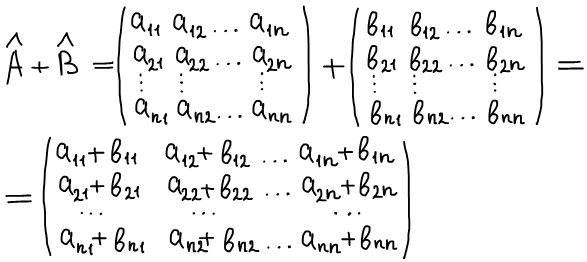 Â + B̂ = ( a₁₁ a₁₂ ... a₁ₙ ) + ( b₁₁ b₁₂ ... b₁ₙ ) =
a₂₁ a₂₂ ... a₂ₙ b₂₁ b₂₂ ... b₂ₙ
⋮ ⋮ ⋮ ⋮ ⋮ ⋮
aₙ₁ aₙ₂ ... aₙₙ bₙ₁ bₙ₂ ... bₙₙ
= ( a₁₁+b₁₁ a₁₂+b₁₂ ... a₁ₙ+b₁ₙ )
a₂₁+b₂₁ a₂₂+b₂₂ ... a₂ₙ+b₂ₙ
... ... ...
aₙ₁+bₙ₁ aₙ₂+bₙ₂ ... aₙₙ+bₙₙ